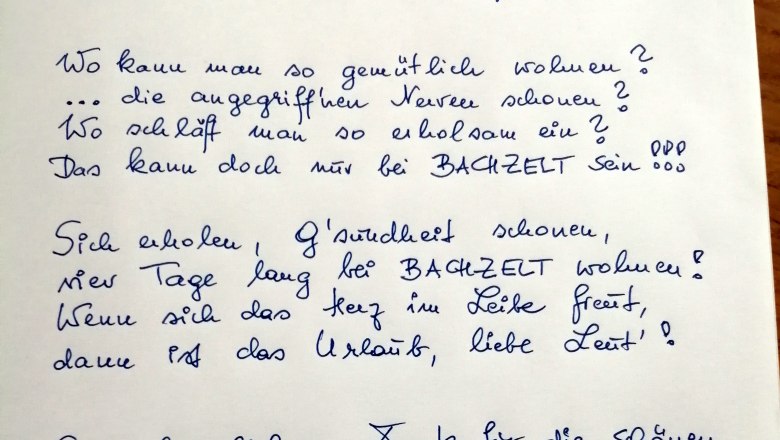 Wo kann man so gemütlich wohnen?
... die angegriff'nen Nerven schonen?
Wo schläft man so erholsam ein?
Das kann doch nur bei BACHZELT sein!!!
Sich erholen, G'sundheit schonen,
vier Tage lang bei BACHZELT wohnen!
Wenn sich das Herz im Leibe freut,
dann ist das Urlaub, liebe Leut'!
für die schönen